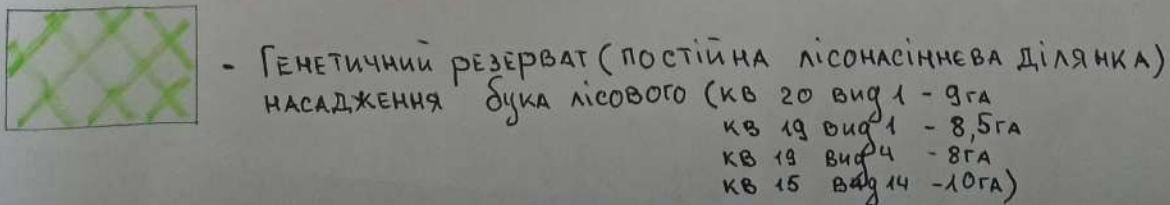 - Генетичний резерват (постійна лісонасіннєва ділянка)
насадження бука лісового (кв 20 вид 1 - 9га
кв 19 вид 1 - 8,5га
кв 19 вид 4 - 8га
кв 15 вид 14 - 10га)